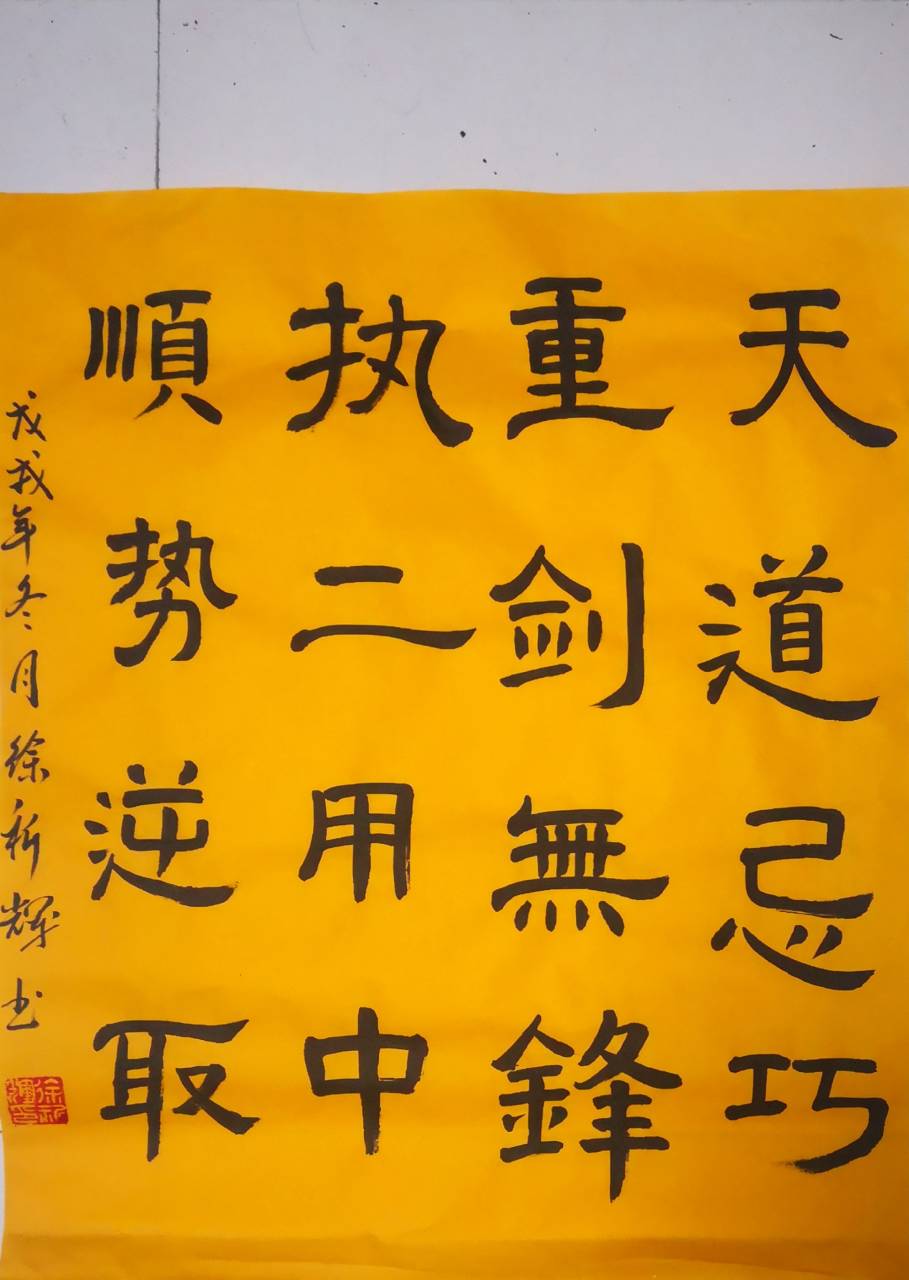 天道忌巧
重剑無鋒
执二用中
順势逆取
戊戌年冬月徐新辉书